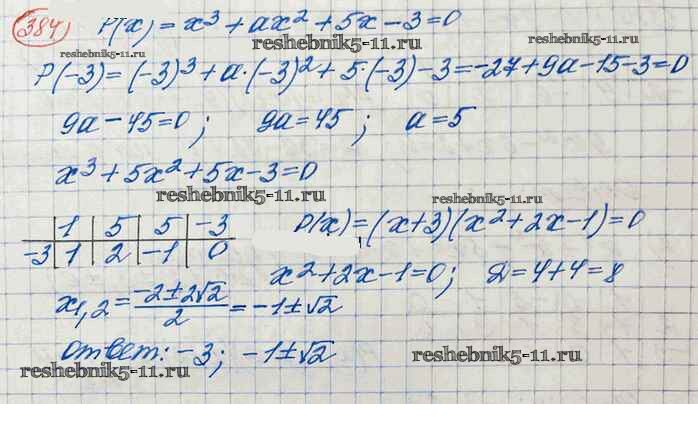 384) P(x) = x³ + ax² + 5x - 3 = 0
reshebnik5-11.ru reshebnik5-11.ru reshebnik5-11.ru
P(-3) = (-3)³ + a·(-3)² + 5·(-3) - 3 = -27 + 9a - 15 - 3 = 0
9a - 45 = 0; 9a = 45; a = 5
x³ + 5x² + 5x - 3 = 0
reshebnik5-11.ru
reshebnik5-11.ru
| 1 | 5 | 5 | -3
-3 | 1 | 2 | -1 | 0
P(x) = (x+3)(x² + 2x - 1) = 0
x² + 2x - 1 = 0; D = 4 + 4 = 8
x1,2 = (-2 ± 2√2)/2 = -1 ± √2
reshebnik5-11.ru
reshebnik5-11.ru
ответ: -3; -1 ± √2
reshebnik5-11.ru
reshebnik5-11.ru